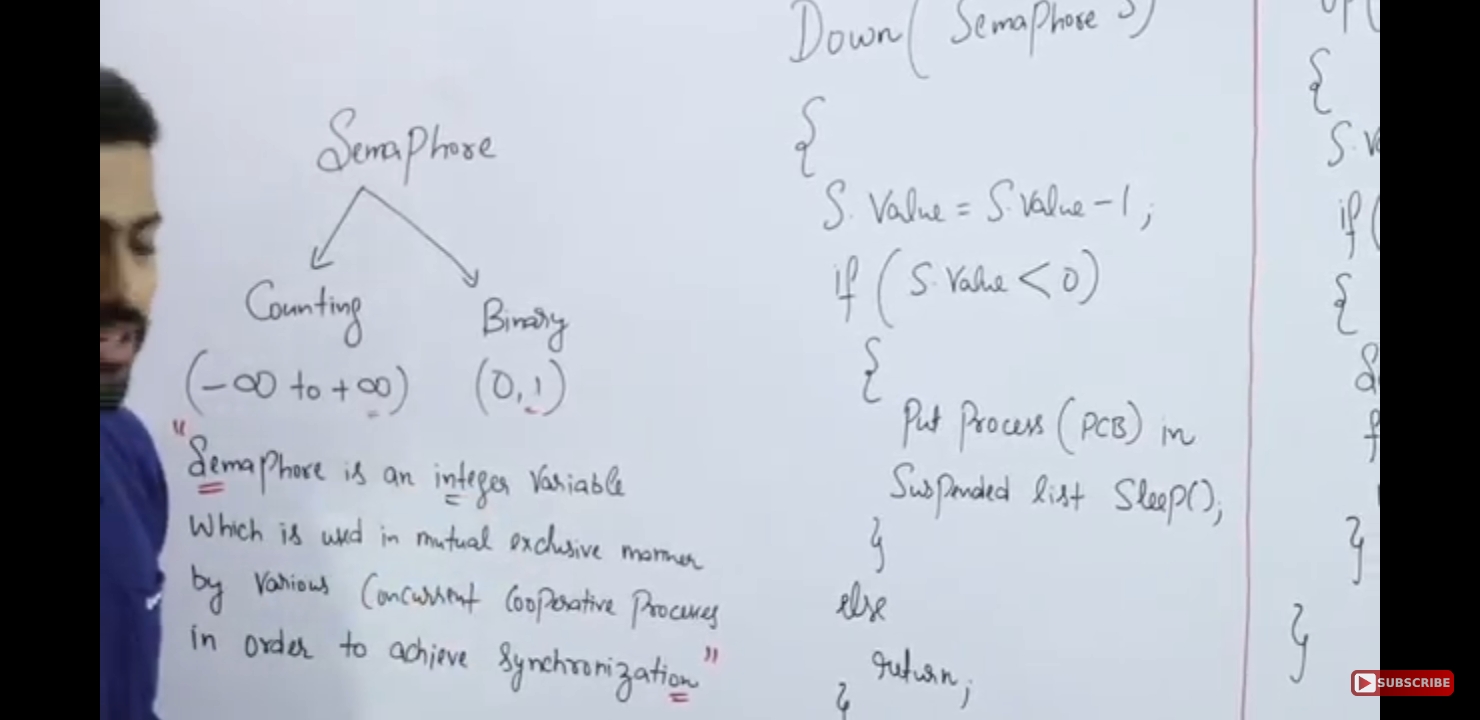 Semaphore
Counting
Binary
(-∞ to +∞)
(0, 1)
"Semaphore is an integer Variable
Which is used in mutual exclusive manner
by Various Concurrent Cooperative Processes
in order to achieve Synchronization"
Down( Semaphore S)
{
S. Value = S. Value - 1;
if ( S. Value < 0)
{
Put Process (PCB) in
Suspended list Sleep();
}
else
return;
}
{
if (
{
}
}
SUBSCRIBE